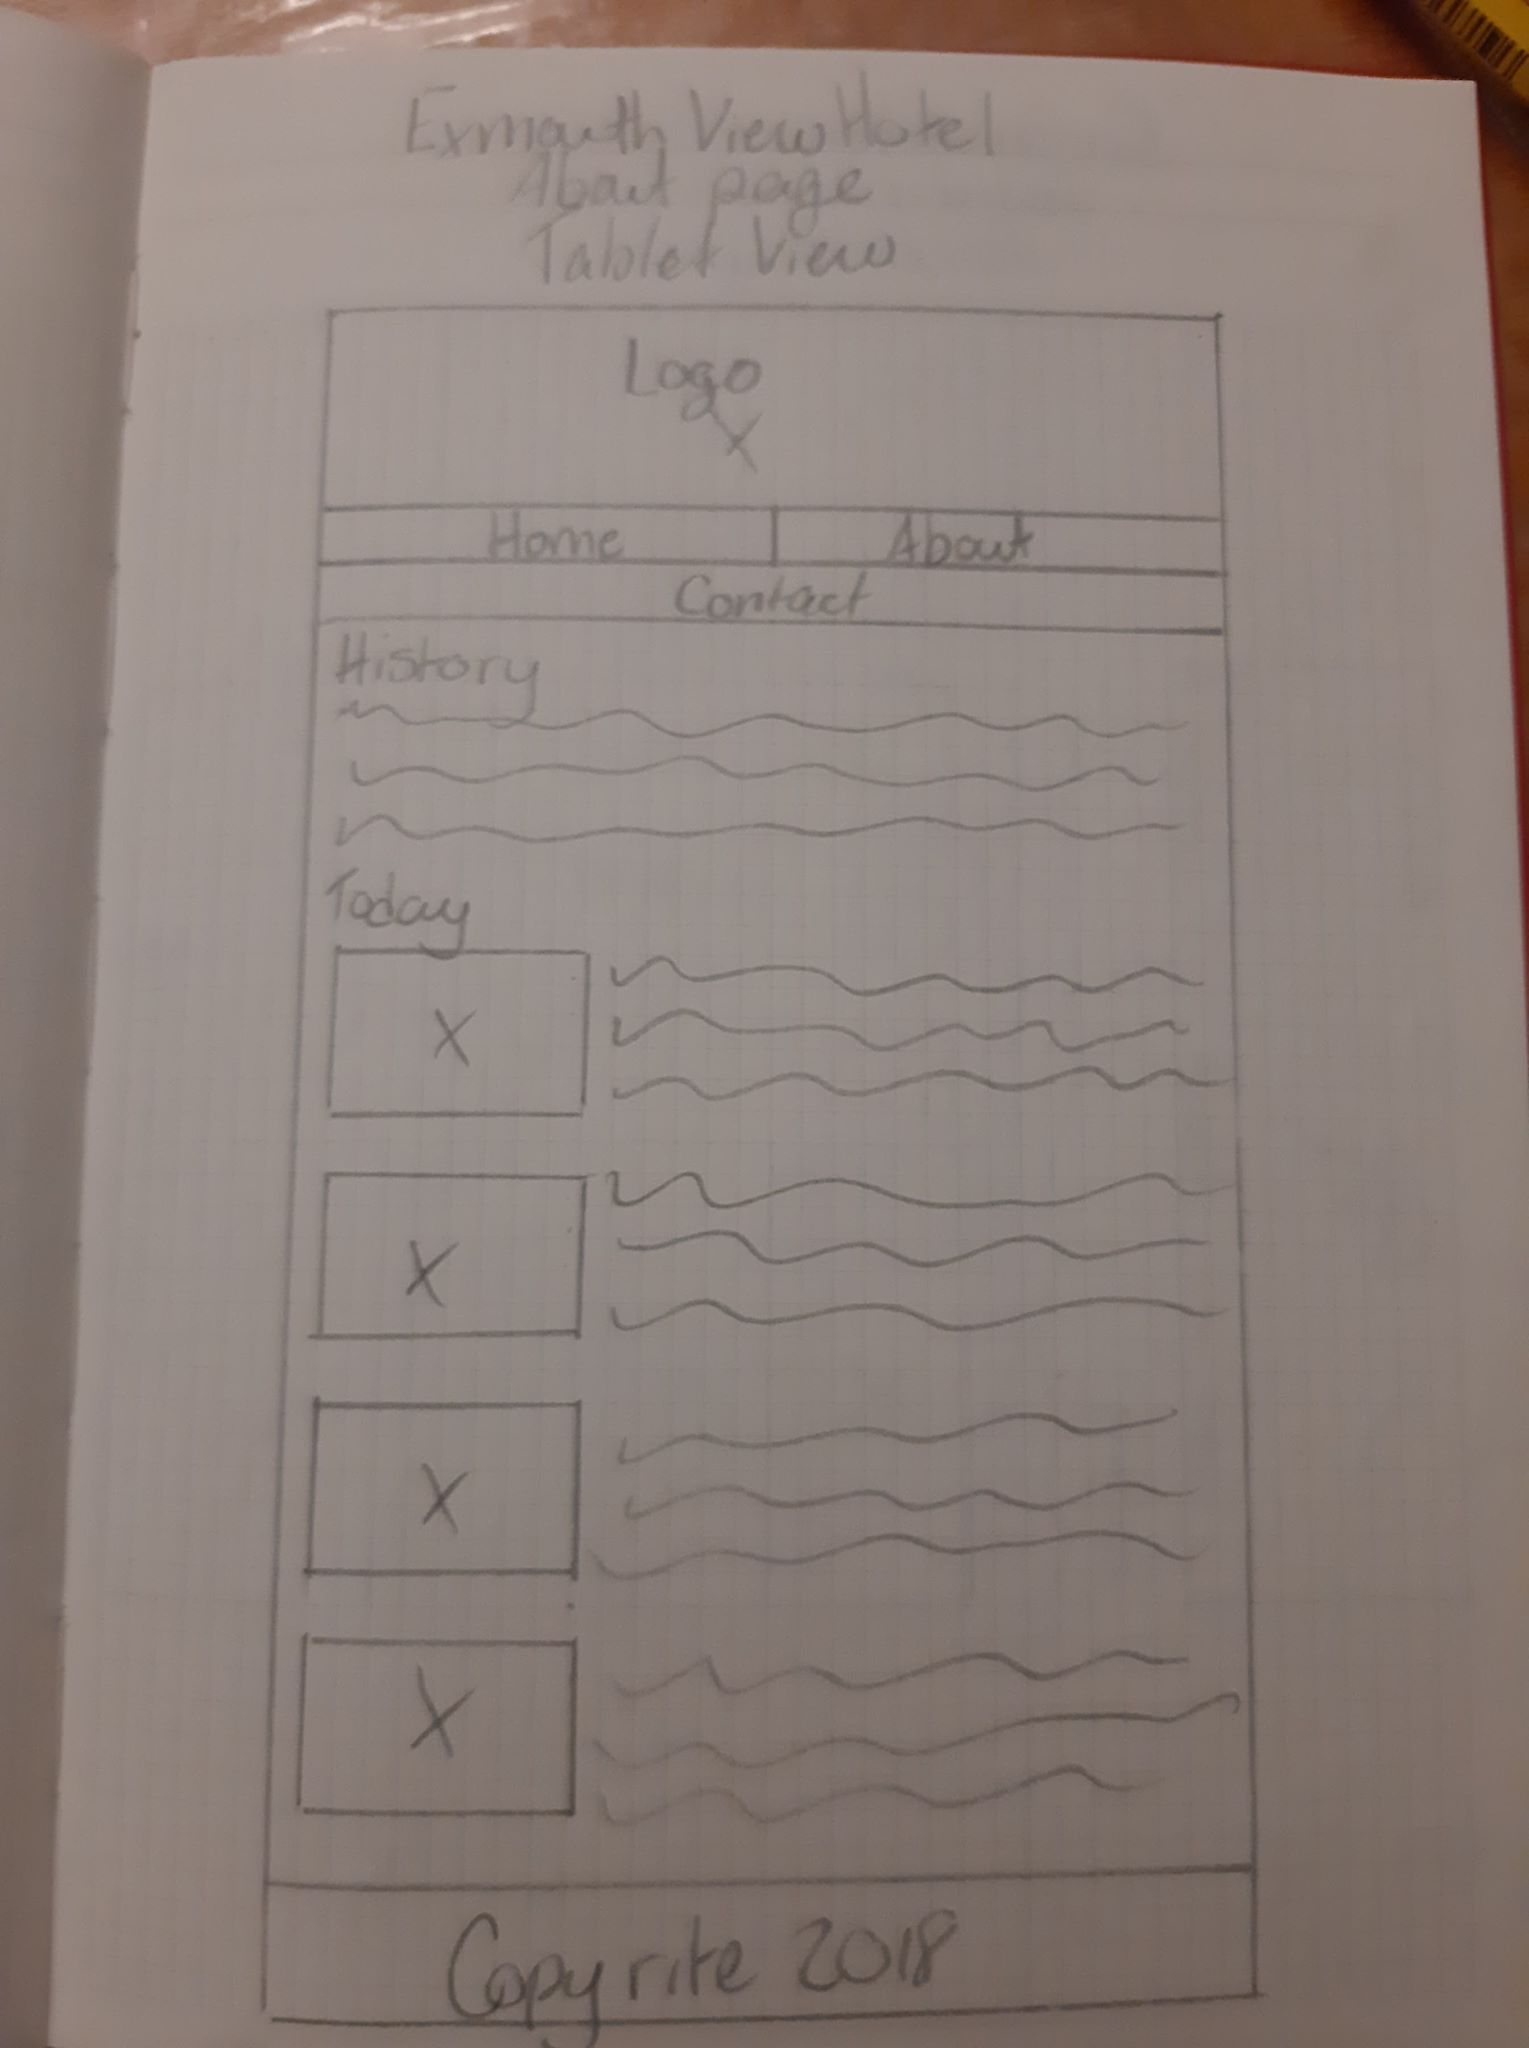 Exmouth View Hotel
About page
Tablet View
Logo
X
Home About
Contact
History
Today
X
X
X
X
Copyrite 2018